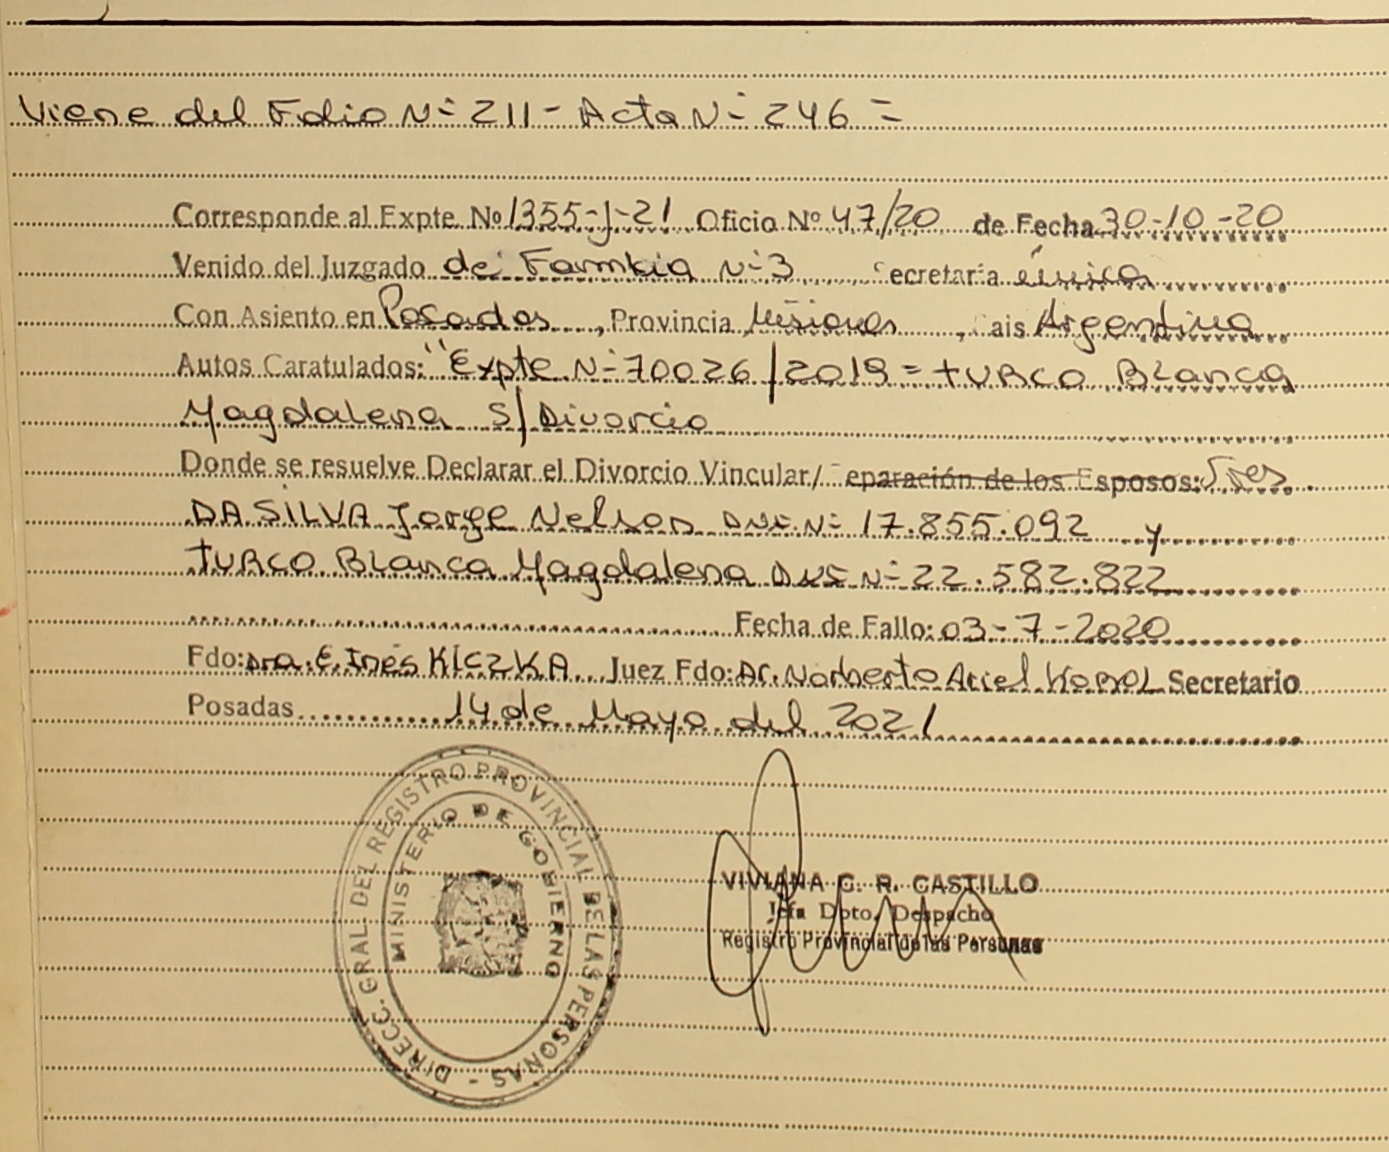 Viene del Folio Nº 211 - Acta Nº 246 =
Corresponde al Expte. Nº 1355-J-21 Oficio Nº 47/20 de Fecha 30-10-20
Venido del Juzgado de Familia Nº 3 ecretaría única
Con Asiento en Posadas, Provincia Misiones, ais Argentina
Autos Caratulados: "Expte Nº 70026/2019 = TURCO BLanca
Magdalena S/Divorcio
Donde se resuelve Declarar el Divorcio Vincular/ eparación de los Esposos: Sres.
DA SILVA Jorge Nelson DNI Nº 17.855.092 y
TURCO BLanca Magdalena DNI Nº 22.582.822
Fecha de Fallo: 03-7-2020
Fdo: Dra. E. Inés KICZKA Juez Fdo: Dr. Norberto Ariel KOROL Secretario
Posadas 14 de Mayo del 2021
DIRECC. GRAL. DEL REGISTRO PROVINCIAL DE LAS PERSONAS -
MINISTERIO DE GOBIERNO
VIVIANA G. R. CASTILLO
Jefa Dpto. Despacho
Registro Provincial de las Personas